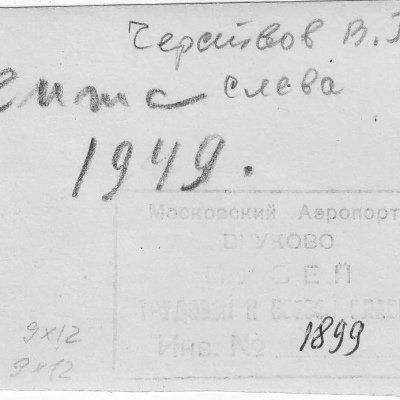 Черствов В.
слева
1949.
Московский Аэропорт
ВНУКОВО
МУЗЕЙ
ТРУДОВОЙ И БОЕВОЙ СЛАВЫ
Инв. № 1899
9x12
9x12